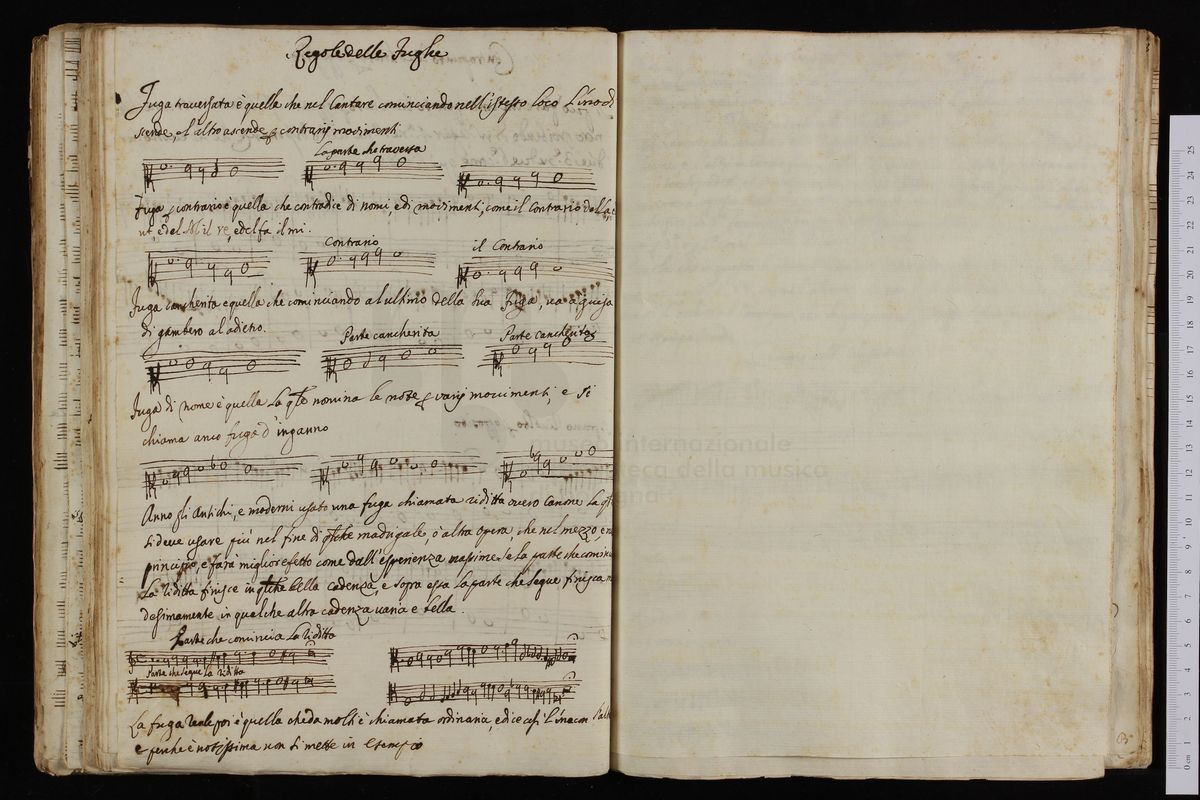 Regole delle Fughe
Fuga traversata è quella che nel Cantare cominciando nell'istesso loco l'uno di
scende, el altro ascende p contrarij movimenti
La parte che traversa
Fuga p contrario è quella che contradice di nomi, e di movimenti, come il contrario del La,
ut, e del Mi il re, e del fa il mi.
Contrario
il Contrario
Fuga cancherita e quella che cominciando al ultimo della sua Fuga, va a guisa
di gambero al adietro.
Parte cancherita
Parte cancherita
Fuga di nome è quella La qle nomina le note p varij movimenti, e si
chiama anco fuga d'inganno
Anno gli Antichi, e moderni usato una fuga chiamata riditta overo Canone La
si deve usare più nel fine di qlche madrigale, ò altra opera, che nel mezzo,
principio, e farà miglior efetto come dall'esperienza massime se la parte che
La riditta finisce in qlche bella cadenza, e sopra essa la parte che segue finisca
desimamente in qualche altra cadenza varia e bella.
Parte che comincia La riditta
Parte che segue La riditta
La fuga reale poi è quella che da molti è chiamata ordinaria, e dice così l'una con
e perche è notissima non si mette in esempio
museo internazionale
biblioteca della musica
25
24
23
22
21
20
19
18
17
16
15
14
13
12
11
10
9
8
7
6
5
4
3
2
1
0 cm